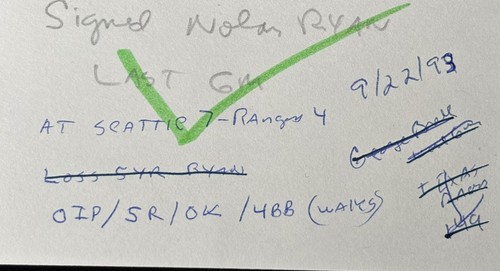 Signed Nolan RYAN
LAST GM
9/22/93
AT SEATTLE 7-RANGERS 4
LOSS 5YR RYAN
0IP/5R/0K/4BB (WALKS)